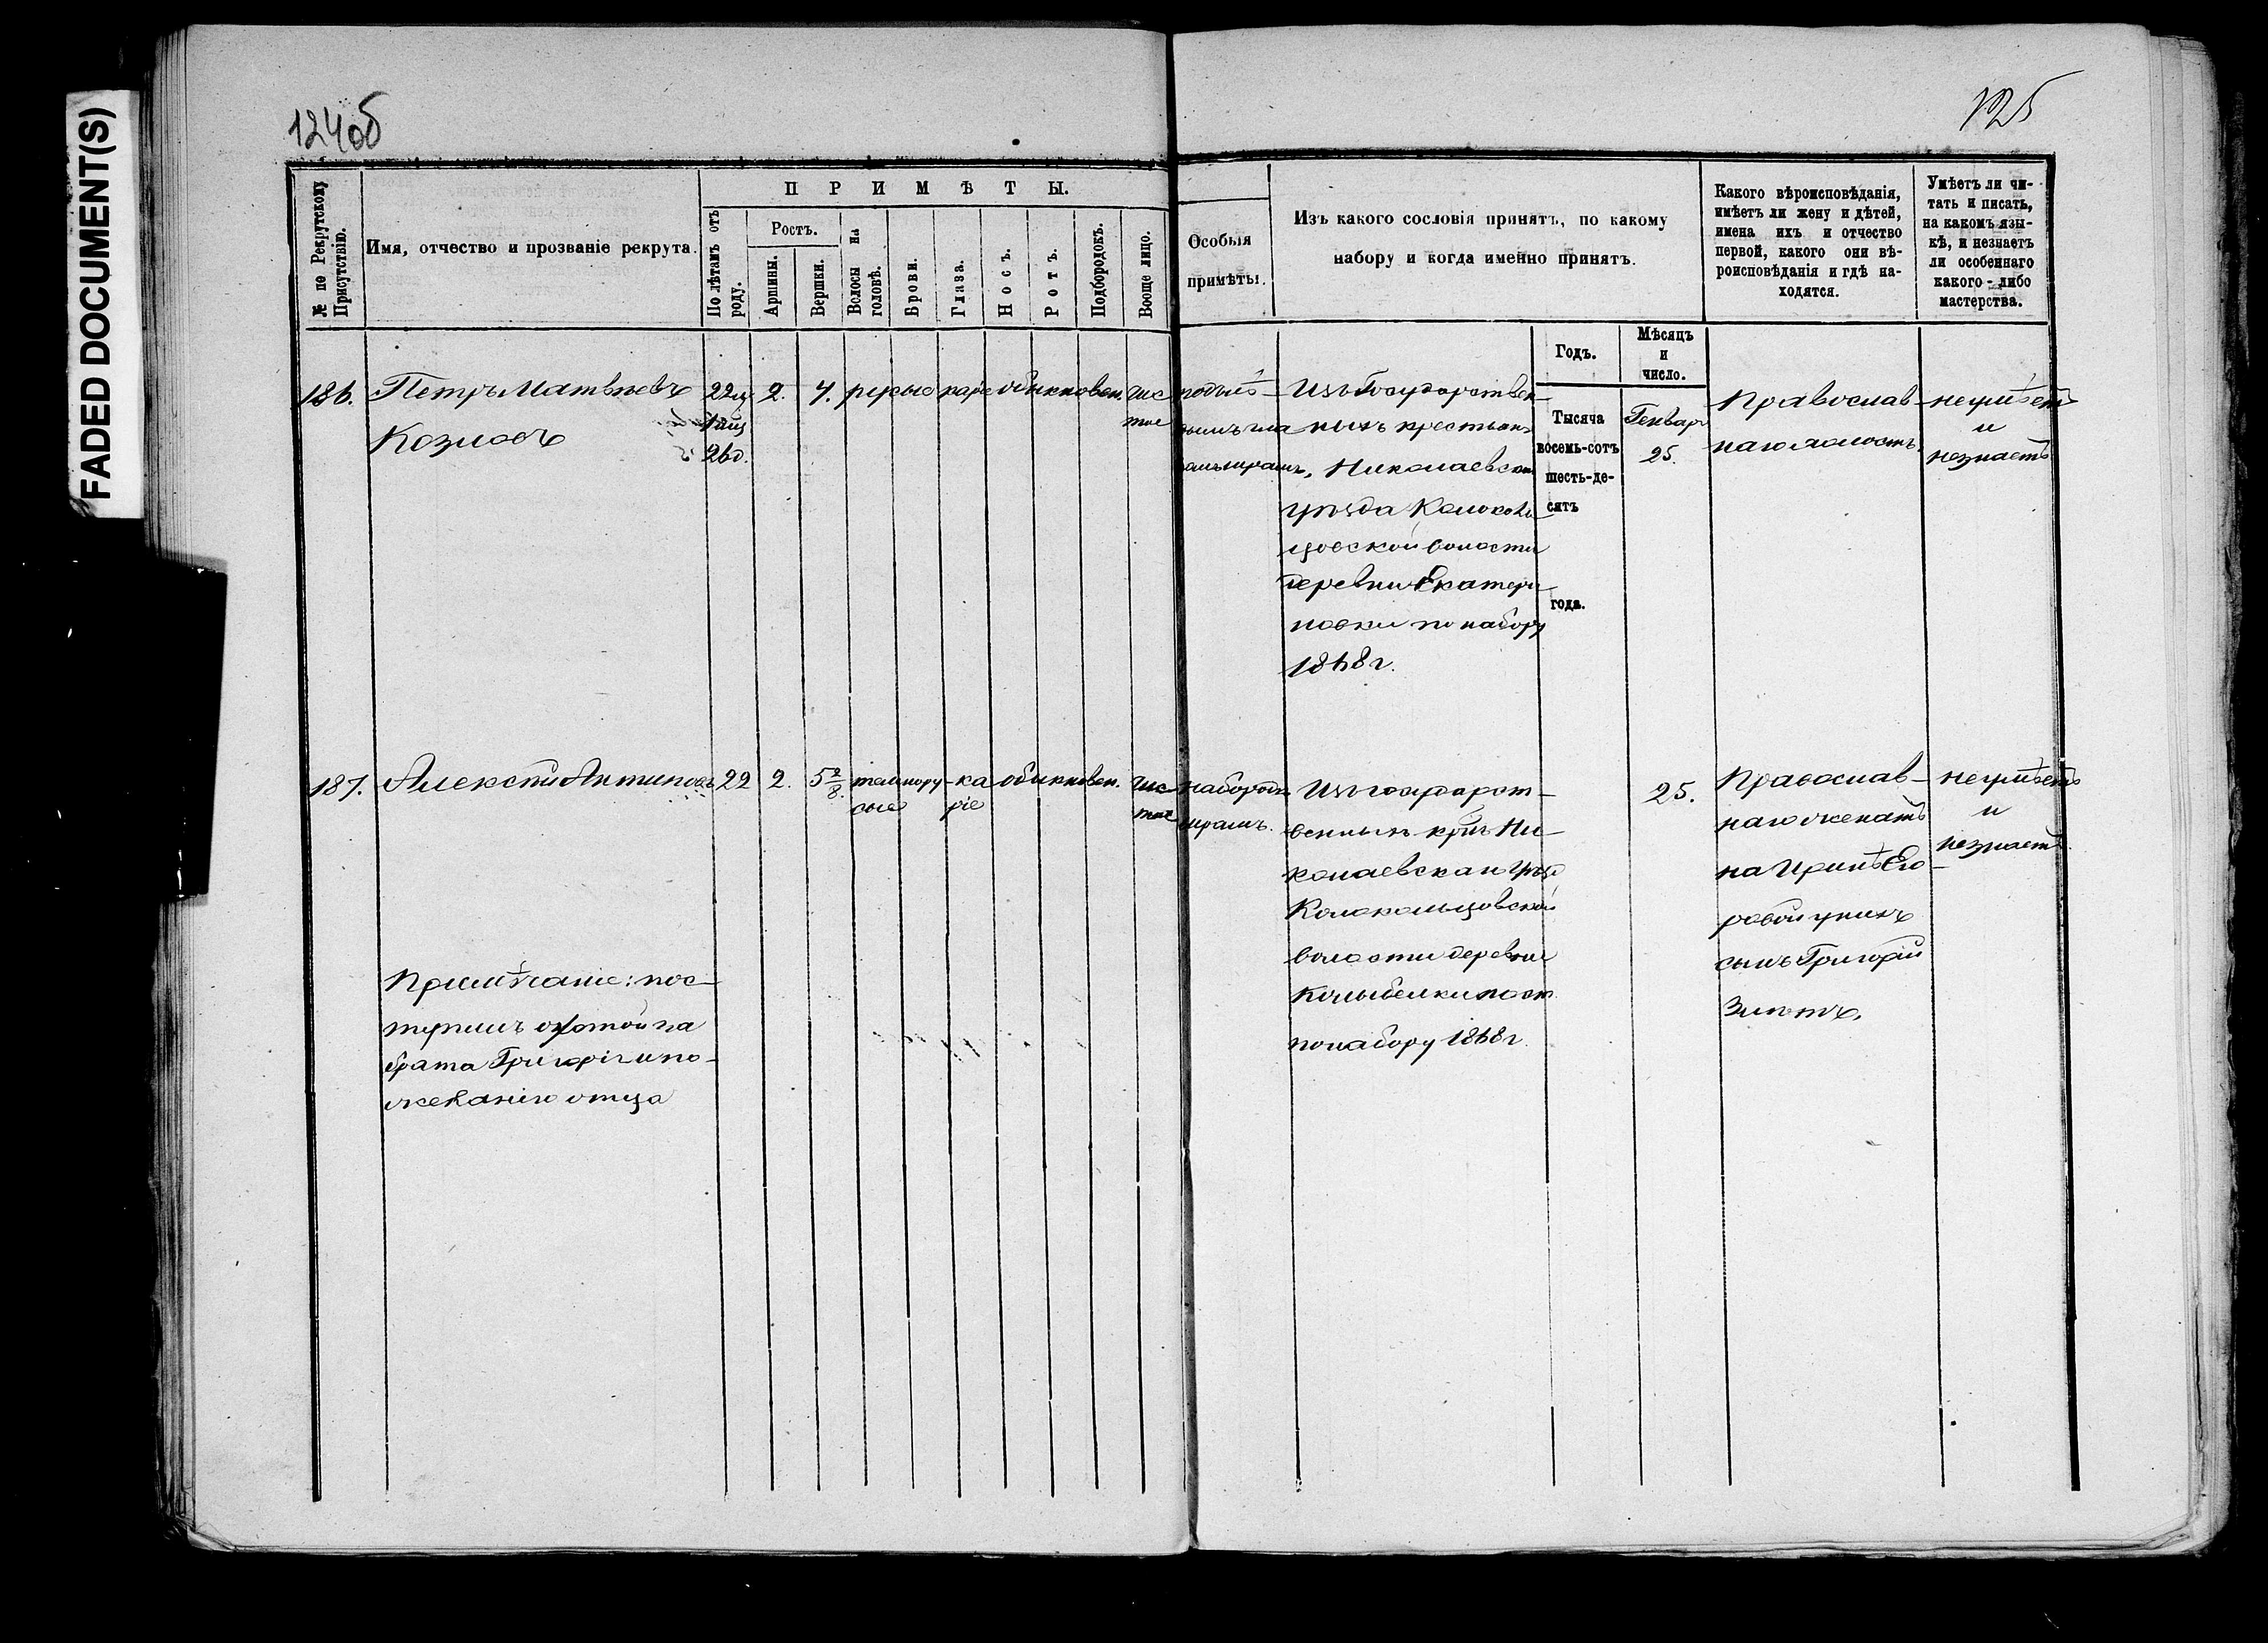 FADED DOCUMENT(S)
124об
125
№ по Рекрутскому Присутствію.
Имя, отчество и прозваніе рекрута.
ПРИМѢТЫ.
По лѣтамъ отъ роду.
Ростъ.
Аршины.
Вершки.
Волосы на головѣ.
Брови.
Глаза.
Носъ.
Ротъ.
Подбородокъ.
Вооще лицо.
Особыя
примѣты.
Изъ какого сословія принятъ, по какому
набору и когда именно принятъ.
Какого вѣроисповѣданія,
имѣетъ ли жену и дѣтей,
имена ихъ и отчество
первой, какого они вѣ-
роисповѣданія и гдѣ на-
ходятся.
Умѣетъ ли чи-
тать и писать,
на какомъ язы-
кѣ, и незнаетъ
ли особеннаго
какого-либо
мастерства.
Годъ.
Мѣсяцъ
и
число.
186.
Петръ Матвѣевъ
Козловъ
22
26д.
2.
4.
русые
каріе
обыкновен.
чис
тое
Изъ Государствен-
ныхъ крестьянъ
Николаевскаго
уѣзда Колоколь
цовской волости
деревни Екатери
новки по набору
1868 г.
Тысяча
восемь-сотъ
шесть-де-
сятъ
года.
Генваря
25.
Православ-
наго холостъ.
неумѣетъ
и
незнаетъ
187.
Алексѣй Антиповъ
22
2.
5 2/8.
темнору-
сые
ка
ріе
обыкновен.
чис
тое
на бородѣ
шрамъ.
Изъ государст-
венныхъ кр. Ни-
колаевскаго уѣзд
Колокольцовской
волости деревни
Колыбелки пост
по набору 1868 г.
25.
Православ-
наго женатъ
на Иринѣ Его-
ровой у нихъ
сынъ Григорій
3 лѣтъ.
неумѣетъ
и
незнаетъ.
Примѣчаніе: пос-
тупилъ охотой за
брата Григорія по-
желанію отца